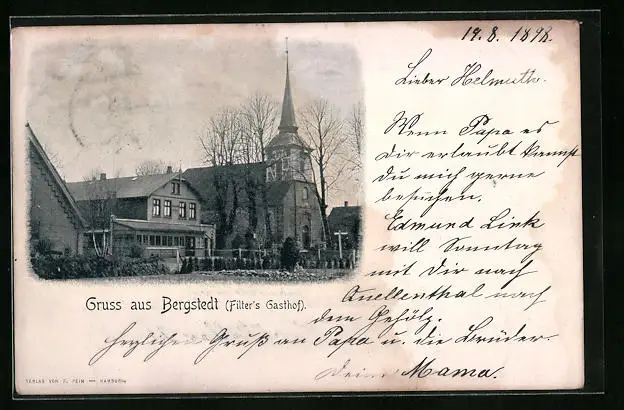 19.8. 1898.
Lieber Helmuth.
Wenn Papa es
Dir erlaubt kannst
du mich gerne
besuchen.
Edmund Link
will Sonntag
mit Dir nach
Quellenthal nach
dem Gehölz.
Herzlichen Gruß an Papa u. die Brüder.
Deine Mama.
Gruss aus Bergstedt (Filter's Gasthof).
VERLAG VON HAMBURG